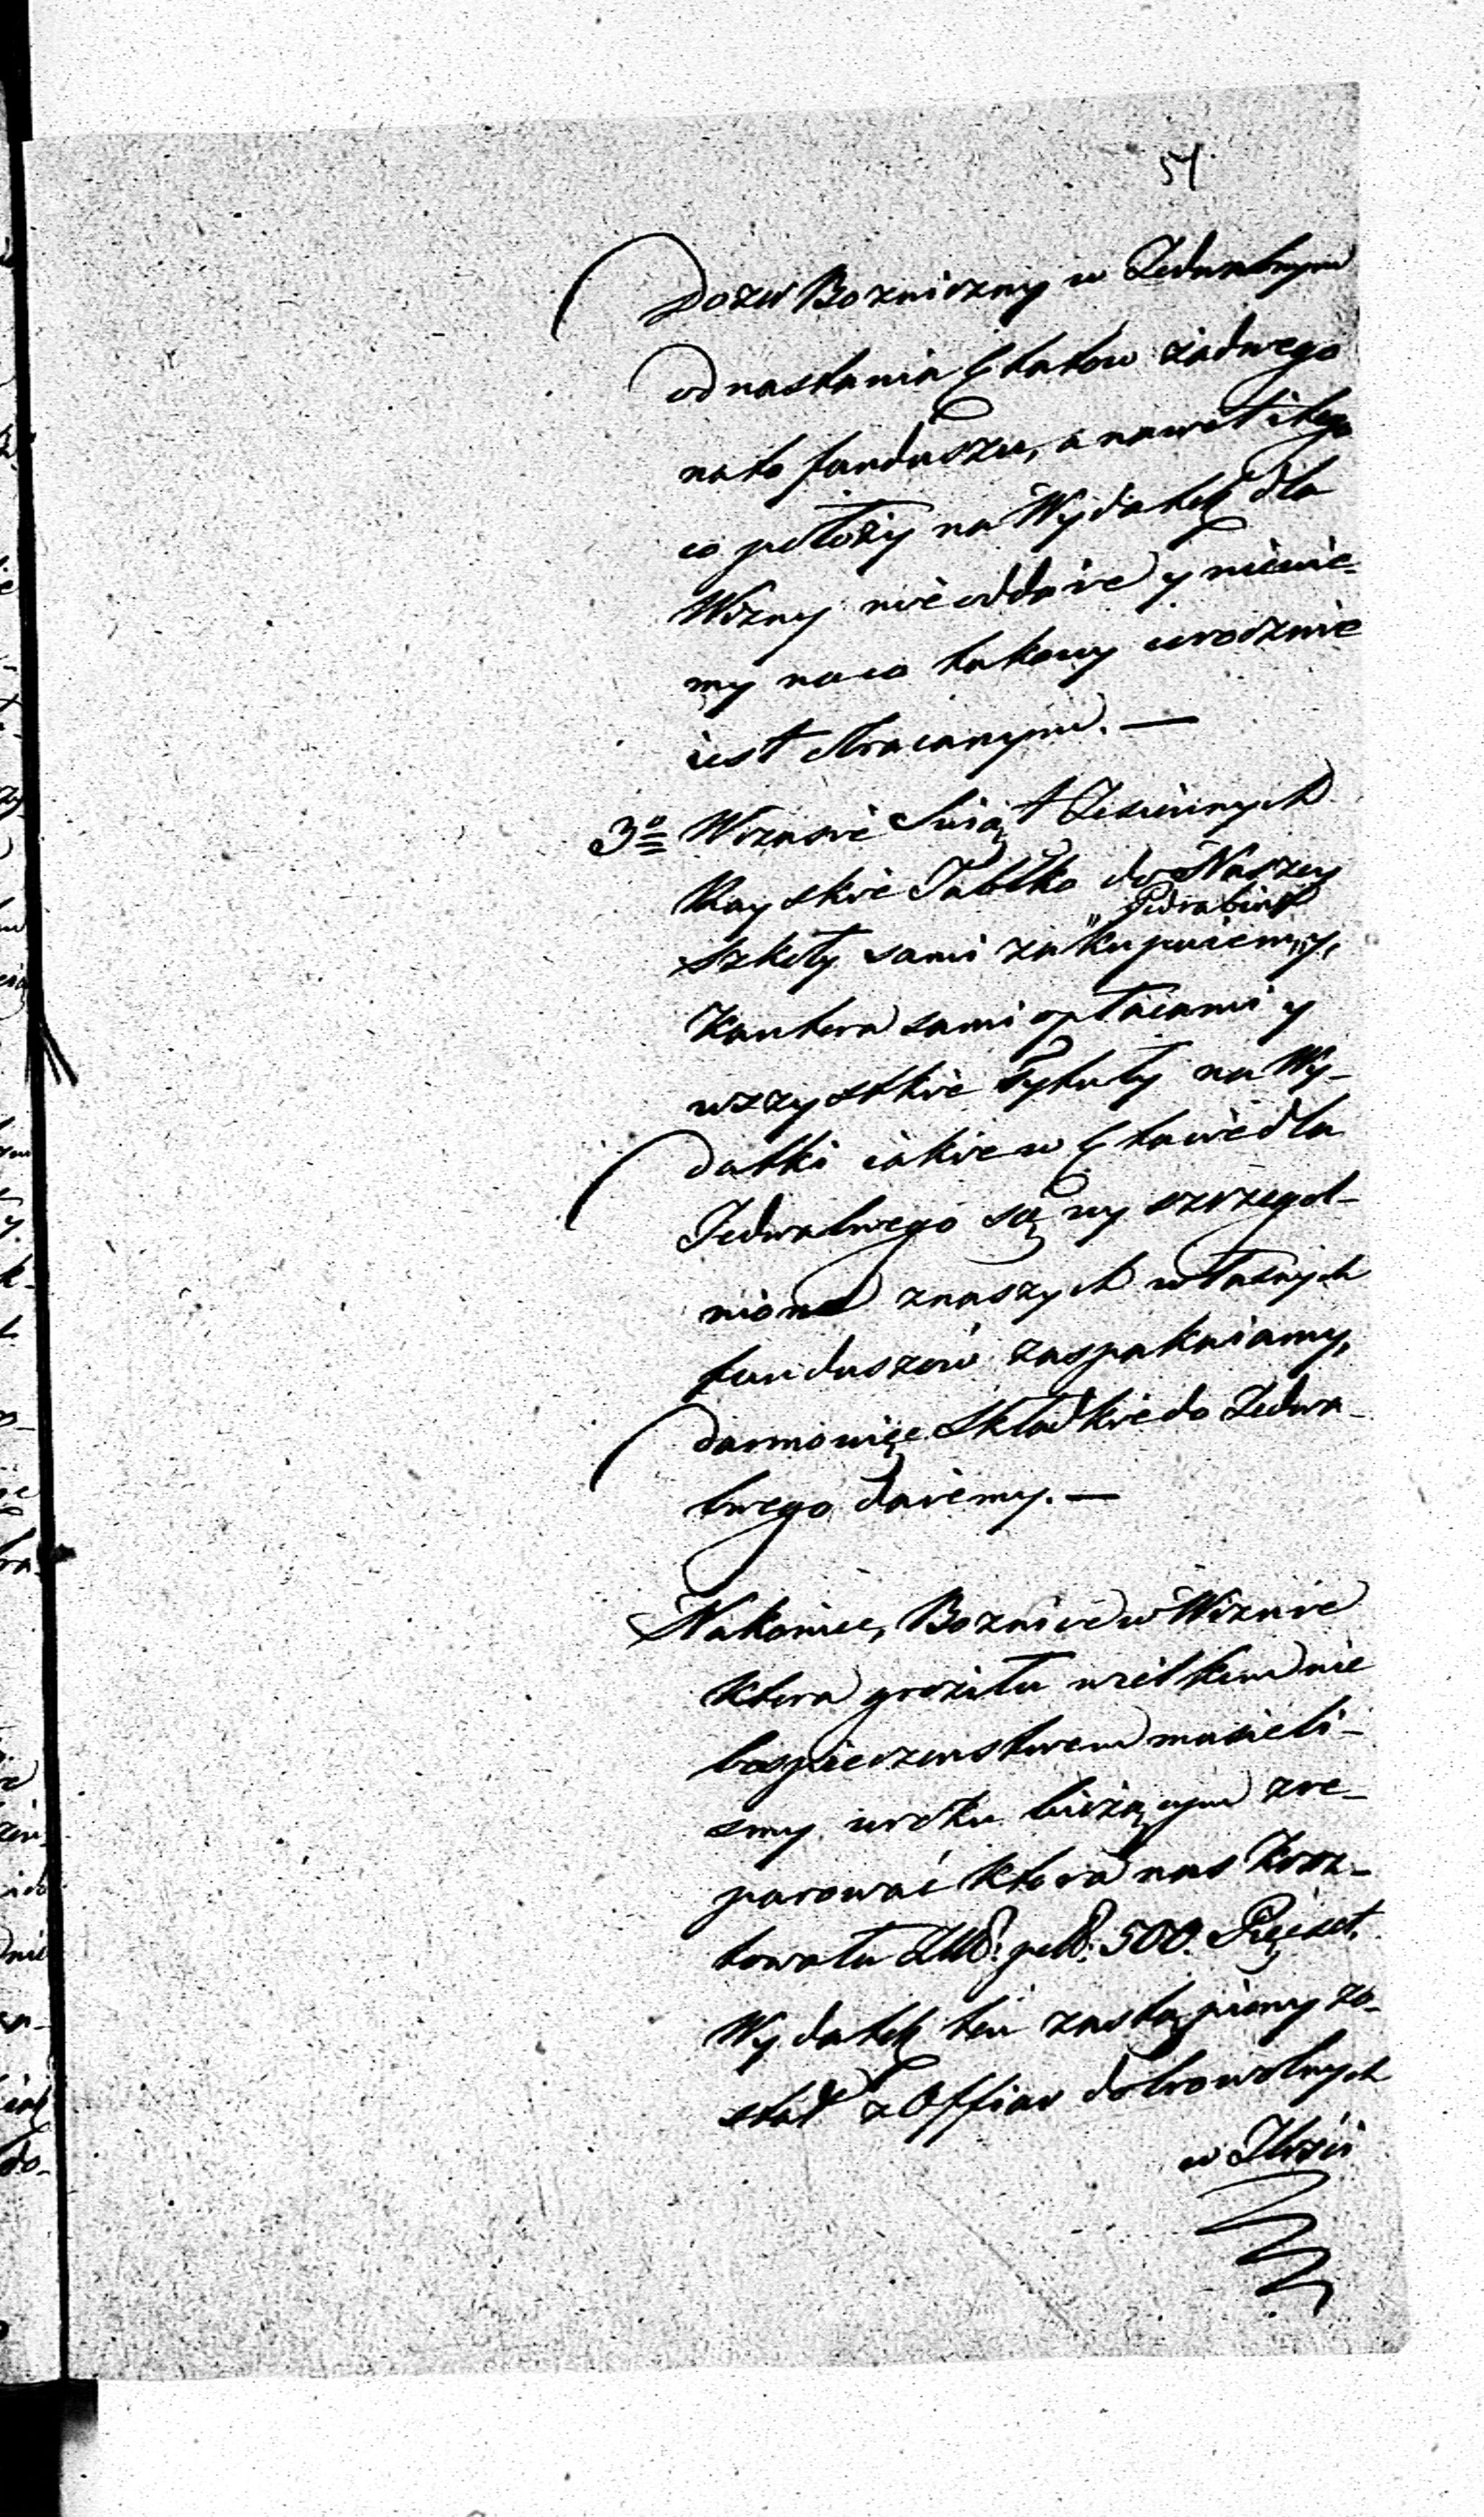 54
Dozor Bozniczny w Jedwabnym
od nastania Etatow żadnego
na to funduszu, a nawet i tego
co położy na Wydatek dla
Wizny nie oddaie y niewie-
my na co takowy corocznie
iest obracanym. —
3o Wczasie Swiąt Jesiennych
Rayskie Jabłko do Naszey
Szkoły sami zakupuiemy,
Podrabina
Kantora sami opłacami y
wszystkie Tytuły na Wy-
datki iakie w Etawie dla
Jedwabnego są wyszczegol-
nione znaszych własnych
funduszow zaspakaiamy,
darmo więc Składkie do Jedwa-
bnego daiemy. —
Nakoniec, Boznice w Wiznie
ktora groziła wielkim nie
bespieczenstwem musieli-
smy wroku bieżącym zre-
parować ktora nas kosz-
towała Złł: poll: 500. Pięcset.
Wydatek ten zastąpiony zo-
stał z Offiar dobrowolnych
w Ilości